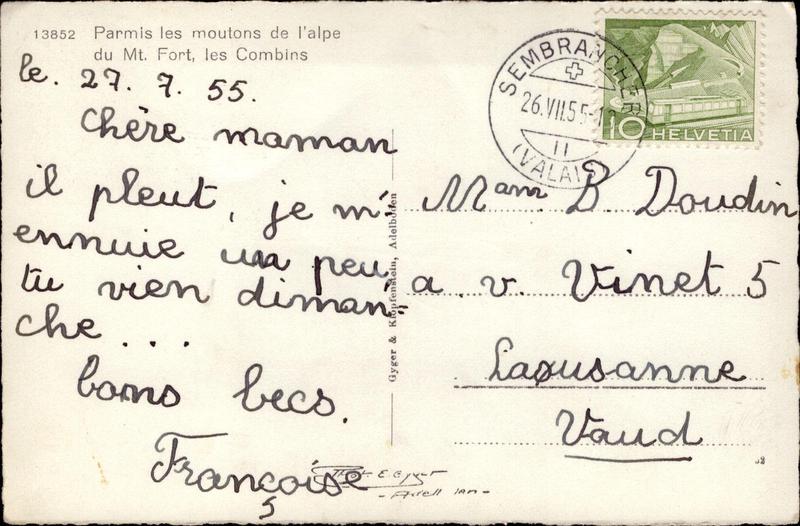 13852 Parmis les moutons de l'alpe
du Mt. Fort, les Combins
le. 27. 7. 55.
Chère maman
il pleut, je m'
ennuie un peu
tu vien diman-
che...
bons becs.
Françoise
Gyger & Klopfenstein, Adelboden
SEMBRANCHER
26.VII.55-
II
(VALAIS)
10 HELVETIA
Mam B. Doudin
a. v. Vinet 5
Laousanne
Vaud